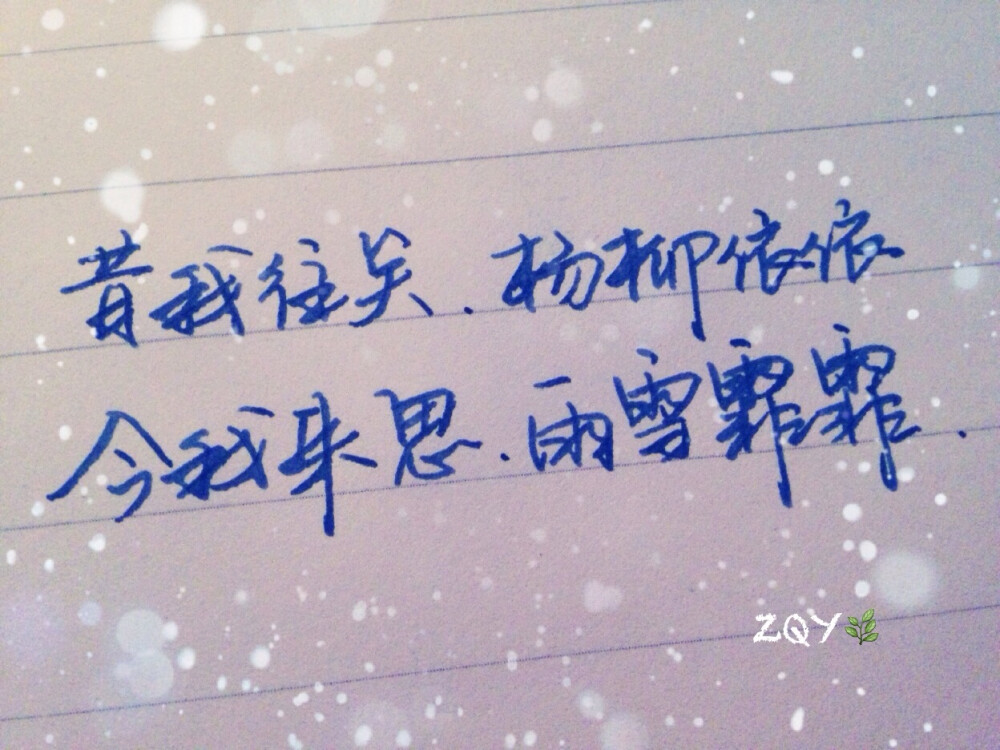 昔我往矣.杨柳依依
今我来思.雨雪霏霏.
ZQY